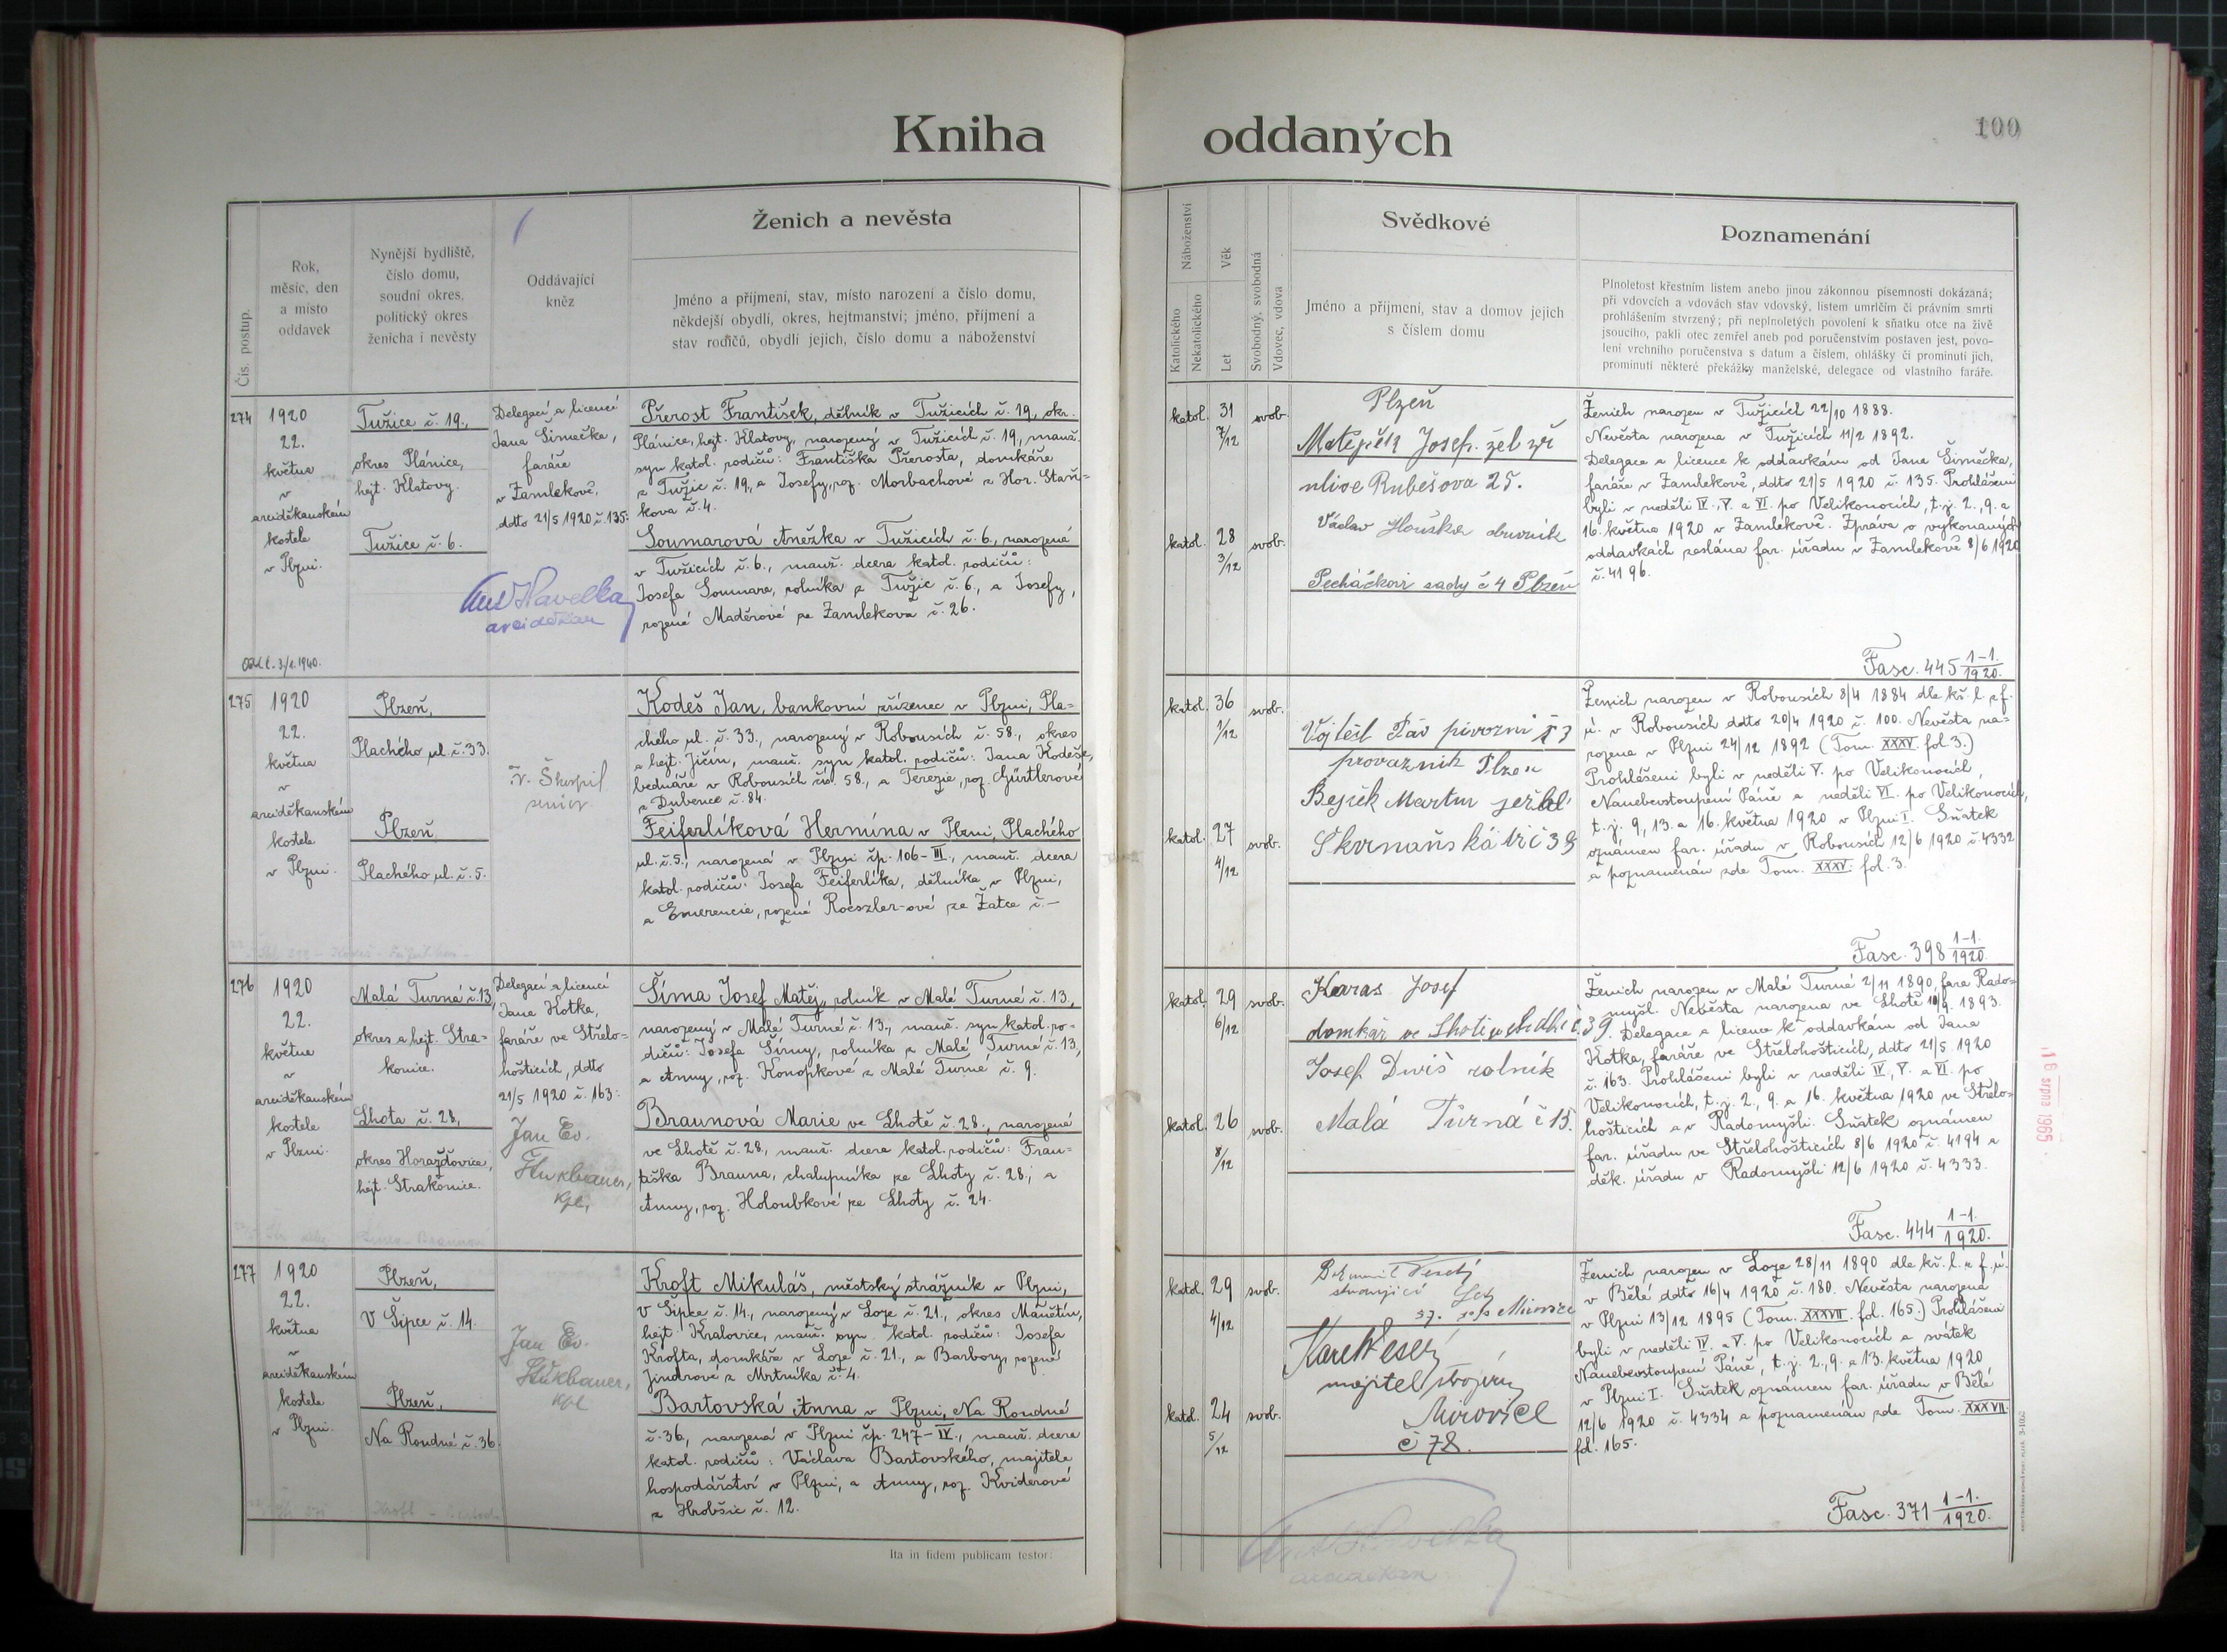 Kniha oddaných
100
Čís. postup.
Rok,
měsíc, den
a místo
oddavek
Nynější bydliště,
číslo domu,
soudní okres,
politický okres
ženicha i nevěsty
Oddávající
kněz
Ženich a nevěsta
Jméno a příjmení, stav, místo narození a číslo domu,
někdejší obydlí, okres, hejtmanství; jméno, příjmení a
stav rodičů, obydlí jejich, číslo domu a náboženství
Náboženství
Katolického
Nekatolického
Věk
Let
Svobodný, svobodná
Vdovec, vdova
Svědkové
Jméno a příjmení, stav a domov jejich
s číslem domu
Poznamenání
Plnoletost křestním listem anebo jinou zákonnou písemností dokázaná;
při vdovcích a vdovách stav vdovský, listem umrlčím či právním smrti
prohlášením stvrzený; při neplnoletých povolení k sňatku otce na živě
jsoucího, pakli otec zemřel aneb pod poručenstvím postaven jest, povo-
lení vrchního poručenstva s datum a číslem, ohlášky či prominutí jich,
prominutí některé překážky manželské, delegace od vlastního faráře.
274
1920
22.
května
v
arciděkanském
kostele
v Plzni.
Tužice č. 19.,
okres Plánice,
hejt. Klatovy.
Tužice č. 6.
Delegací a licencí
Jana Šimečka,
faráře
v Zamlekově,
ddto 21/5 1920 č. 135:
Ant Havelka
arciděkan
Přerost František, dělník v Tužicích č. 19, okr.
Plánice, hejt. Klatovy, narozený v Tužicích č. 19, manž.
syn katol. rodičů: Františka Přerosta, domkáře
z Tužic č. 19, a Josefy, roz. Morbachové z Hor. Staň-
kova č. 4.
Soumarová Anežka v Tužicích č. 6., narozená
v Tužicích č. 6., manž. dcera katol. rodičů:
Josefa Soumara, rolníka z Tužic č. 6., a Josefy,
rozené Maděrové ze Zamlekova č. 26.
katol. 31 7/12 svob.
katol. 28 3/12 svob.
Plzeň
Matějček Josef. žel zř
ulice Rubešova 25.
Václav Houška obuvník
Pecháčkovi sady č 4 Plzeň
Ženich narozen v Tužicích 22/10 1888.
Nevěsta narozena v Tužicích 11/2 1892.
Delegace a licence k oddavkám od Jana Šimečka,
faráře v Zamlekově, ddto 21/5 1920 č. 135. Prohlášeni
byli v neděli IV., V. a VI. po Velikonocích, t. j. 2., 9. a
16. května 1920 v Zamlekově. Zpráva o vykonaných
oddavkách zaslána far. úřadu v Zamlekově 8/6 1920
č. 4196.
Fasc. 445 1-1./1920.
275
1920
22.
května
v
arciděkanském
kostele
v Plzni.
Plzeň,
Plachého ul. č. 33.
Plzeň,
Plachého ul. č. 5.
Kodeš Jan, bankovní zřízenec v Plzni, Pla-
chého ul. č. 33., narozený v Robousích č. 58., okres
a hejt. Jičín, manž. syn katol. rodičů: Jana Kodeše,
bednáře v Robousích čís. 58., a Terezie, roz. Güntlerové
z Dubence č. 84.
Feiferlíková Hermína v Plzni, Plachého
ul. č. 5., narozená v Plzni čp. 106-III., manž. dcera
katol. rodičů: Josefa Feiferlíka, dělníka v Plzni,
a Emerencie, rozené Roeszler-ové ze Žatce č. –
katol. 36 1/12 svob.
katol. 27 4/12 svob.
provazník Plzen
Martin
Skvrňanská tř č 39
Ženich narozen v Robousích 8/4 1884 dle kř. l. z f.
ú. v Robousích ddto 20/4 1920 č. 100. Nevěsta na-
rozena v Plzni 24/12 1892 (Tom. XXXV. fol. 3.)
Prohlášeni byli v neděli V. po Velikonocích,
Nanebevstoupení Páně a neděli VI. po Velikonocích,
t. j. 9., 13. a 16. května 1920 v Plzni I. Sňatek
oznámen far. úřadu v Robousích 12/6 1920 č. 4332
a poznamenán zde Tom. XXXV. fol. 3.
Fasc. 398 1-1./1920.
276
1920
22.
května
v
arciděkanském
kostele
v Plzni.
Malá Turná č. 13,
okres a hejt. Stra-
konice.
Lhota č. 28,
okres Horažďovice,
hejt. Strakonice.
Delegací a licencí
Jana Kotka,
faráře ve Střelo-
hošticích, ddto
21/5 1920 č. 163:
Jan Ev.
kpl.
Šíma Josef Matěj, rolník v Malé Turné č. 13,
narozený v Malé Turné č. 13., manž. syn katol. ro-
dičů: Josefa Šímy, rolníka z Malé Turné č. 13,
a Anny, roz. Konopkové z Malé Turné č. 9.
Braunová Marie ve Lhotě č. 28., narozená
ve Lhotě č. 28, manž. dcera katol. rodičů: Fran-
tiška Brauna, chalupníka ze Lhoty č. 28; a
Anny, roz. Holoubkové ze Lhoty č. 24.
katol. 29 6/12 svob.
katol. 26 8/12 svob.
Karas Josef
domkář ve Lhotě č. 39.
Josef Diviš rolník
Malá Turná č 15.
Ženich narozen v Malé Turné 2/11 1890, fara Rado-
myšl. Nevěsta narozena ve Lhotě 10/9. 1893.
Delegace a licence k oddavkám od Jana
Kotka, faráře ve Střelohošticích, ddto 21/5 1920
č. 163. Prohlášeni byli v neděli IV., V. a VI. po
Velikonocích, t. j. 2., 9. a 16. května 1920 ve Střelo-
hošticích a v Radomyšli. Sňatek oznámen
far. úřadu ve Střelohošticích 8/6 1920 č. 4194 a
děk. úřadu v Radomyšli 12/6 1920 č. 4333.
Fasc. 444 1-1./1920.
16 srpna 1965
277
1920
22.
května
v
arciděkanském
kostele
v Plzni.
Plzeň,
V Šipce č. 14.
Plzeň,
Na Roudné č. 36.
Jan Ev.
kpl
Kroft Mikuláš, městský strážník v Plzni,
V Šipce č. 14., narozený v Loze č. 21., okres Manětín,
hejt. Kralovice, manž. syn katol. rodičů: Josefa
Krofta, domkáře v Loze č. 21., a Barbory, rozené
Jindrové z Mrtníka č. 4.
Bartovská Anna v Plzni, Na Roudné
č. 36, narozená v Plzni čp. 247-IV., manž. dcera
katol. rodičů: Václava Bartovského, majitele
hospodářství v Plzni, a Anny, roz. Kviderové
z Hrobšic č. 12.
katol. 29 4/12 svob.
katol. 24 5/12 svob.
Karel Veselý
majitel
Mirovice
č 78.
Ženich narozen v Loze 28/11 1890 dle kř. l. z f. ú.
v Bělé ddto 16/4 1920 č. 180. Nevěsta narozena
v Plzni 13/12 1895 (Tom. XXXVII. fol. 165.) Prohlášeni
byli v neděli IV. a V. po Velikonocích a svátek
Nanebevstoupení Páně, t. j. 2., 9. a 13. května 1920
v Plzni I. Sňatek oznámen far. úřadu v Bělé
12/6 1920 č. 4334 a poznamenán zde Tom. XXXVII.
fol. 165.
Fasc. 371 1-1./1920.
Ita in fidem publicam testor:
Ant Havelka
arciděkan